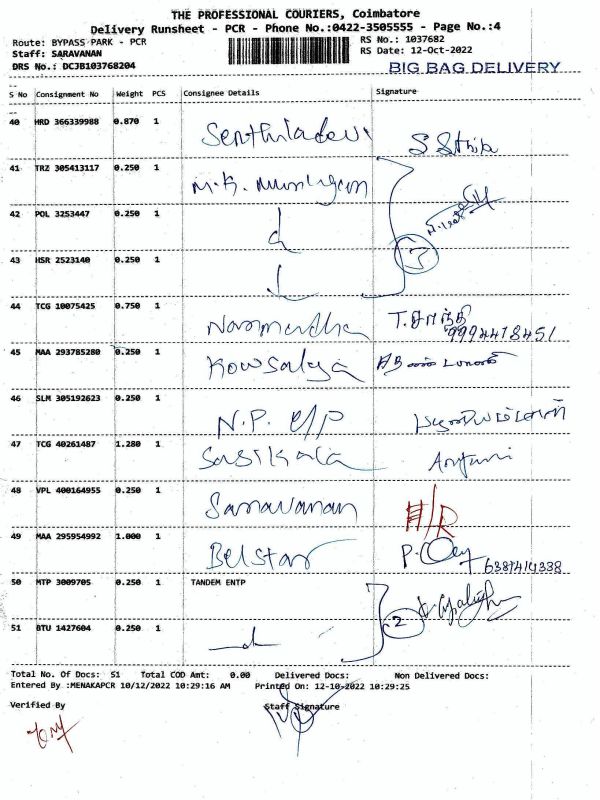 THE PROFESSIONAL COURIERS, Coimbatore
Delivery Runsheet - PCR - Phone No.:0422-3505555 - Page No.:4
Route: BYPASS PARK - PCR
RS No.: 1037682
Staff: SARAVANAN
RS Date: 12-Oct-2022
DRS No.: DCJB103768204
BIG BAG DELIVERY
S No Consignment No Weight PCS Consignee Details Signature
40 HRD 366339988 0.870 1 Senthiladevi
41 TRZ 305413117 0.250 1 M.K. Murugan
42 POL 3253447 0.250 1
43 HSR 2523140 0.250 1 3
44 TCG 10075425 0.750 1 Narmardha T. சாந்தி
9994418451
45 MAA 293785280 0.250 1 Kowsalya
46 SLM 305192623 0.250 1 N.P.
47 TCG 40261487 1.280 1 Sasikala
48 VPL 400164955 0.250 1 Saravanan
49 MAA 295954992 1.000 1 Belstar
6381414338
50 MTP 3009705 0.250 1 TANDEM ENTP
2
51 BTU 1427604 0.250 1
Total No. Of Docs: 51 Total COD Amt: 0.00 Delivered Docs: Non Delivered Docs:
Entered By :MENAKAPCR 10/12/2022 10:29:16 AM Printed On: 12-10-2022 10:29:25
Verified By Staff Signature